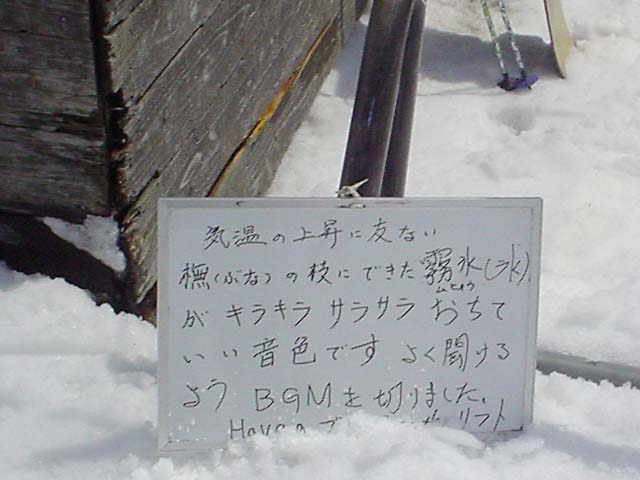 気温の上昇に友ない
橅(ぶな)の枝にできた霧氷(ムヒョウ)(氷)
がキラキラ サラサラ おちて
いい音色です よく聞ける
よう BGMを切りました。
Have a リフト